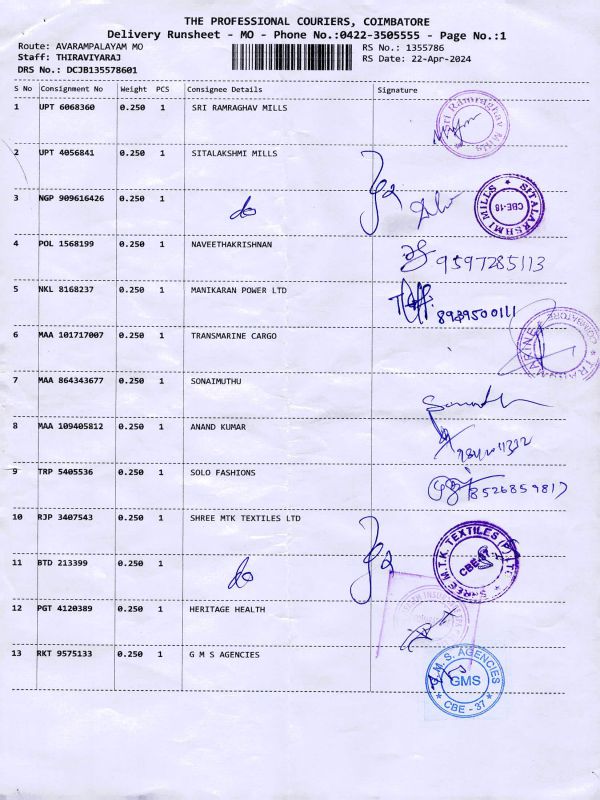 THE PROFESSIONAL COURIERS, COIMBATORE
Delivery Runsheet - MO - Phone No.:0422-3505555 - Page No.:1
Route: AVARAMPALAYAM MO
RS No.: 1355786
Staff: THIRAVIYARAJ
RS Date: 22-Apr-2024
DRS No.: DCJB135578601
S No Consignment No Weight PCS Consignee Details Signature
1 UPT 6068360 0.250 1 SRI RAMRAGHAV MILLS
Sri Ramraghav Mills
2 UPT 4056841 0.250 1 SITALAKSHMI MILLS
3 NGP 909616426 0.250 1 do
SITALAKSHMI MILLS CBE-18
4 POL 1568199 0.250 1 NAVEETHAKRISHNAN
9597285113
5 NKL 8168237 0.250 1 MANIKARAN POWER LTD
8989500111
6 MAA 101717007 0.250 1 TRANSMARINE CARGO
TRANSMARINE COIMBATORE
7 MAA 864343677 0.250 1 SONAIMUTHU
8 MAA 109405812 0.250 1 ANAND KUMAR
9 TRP 5405536 0.250 1 SOLO FASHIONS
8526859817
10 RJP 3407543 0.250 1 SHREE MTK TEXTILES LTD
SHREE M.T.K. TEXTILES (P) LTD CBE-37
11 BTD 213399 0.250 1 do
12 PGT 4120389 0.250 1 HERITAGE HEALTH
13 RKT 9575133 0.250 1 G M S AGENCIES
G.M.S. AGENCIES
GMS
CBE - 37